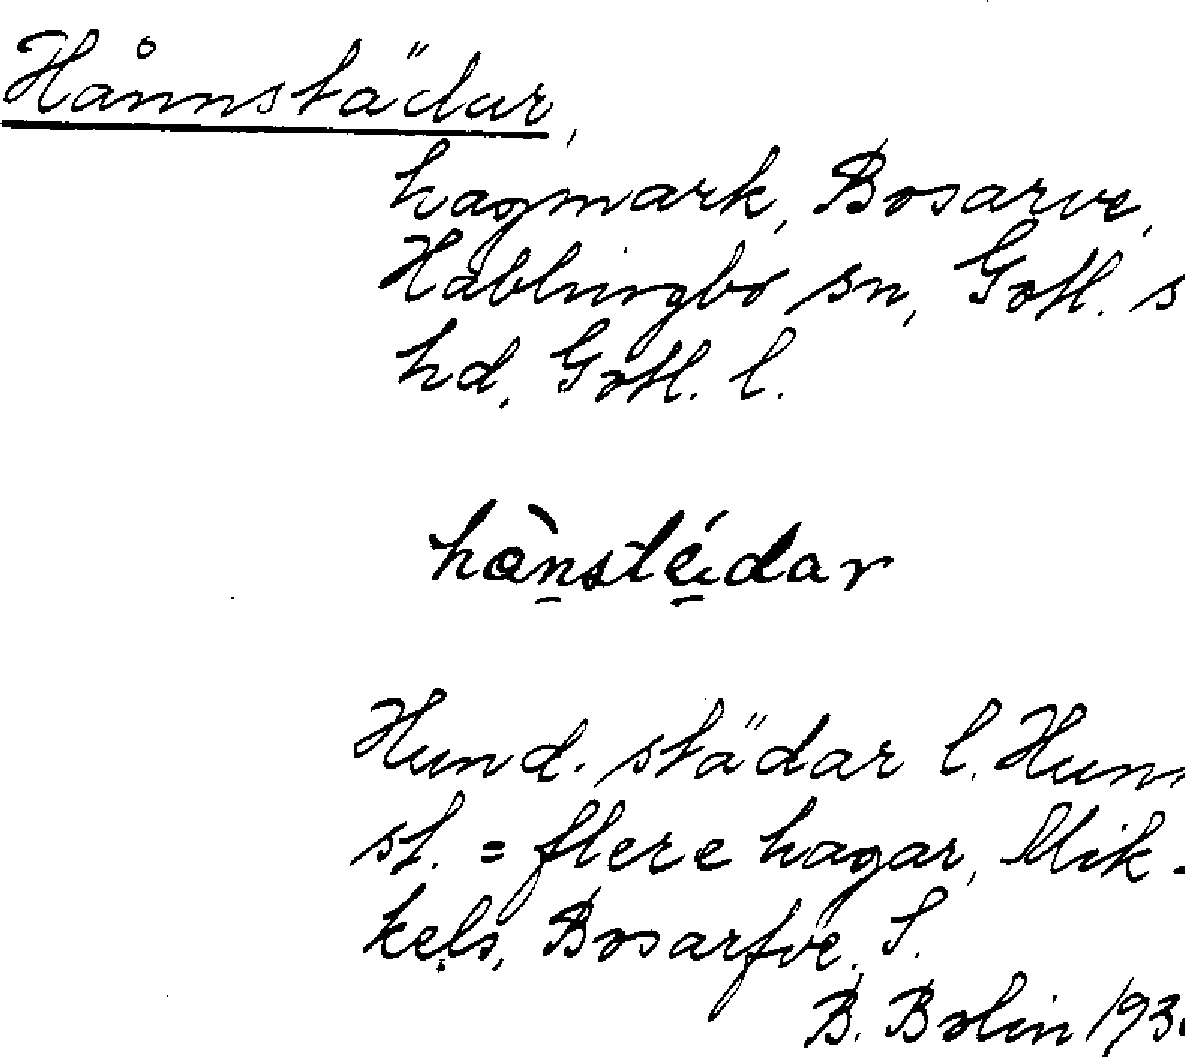 Hånnstädar,
hagmark, Bosarve,
Hablingbo sn, Gotl. s
hd, Gotl. l.
hànstédar
Hund. städar l. Hunn
st. = flere hagar, Mik-
kels, Bosarfve, S.
B. Bolin 193